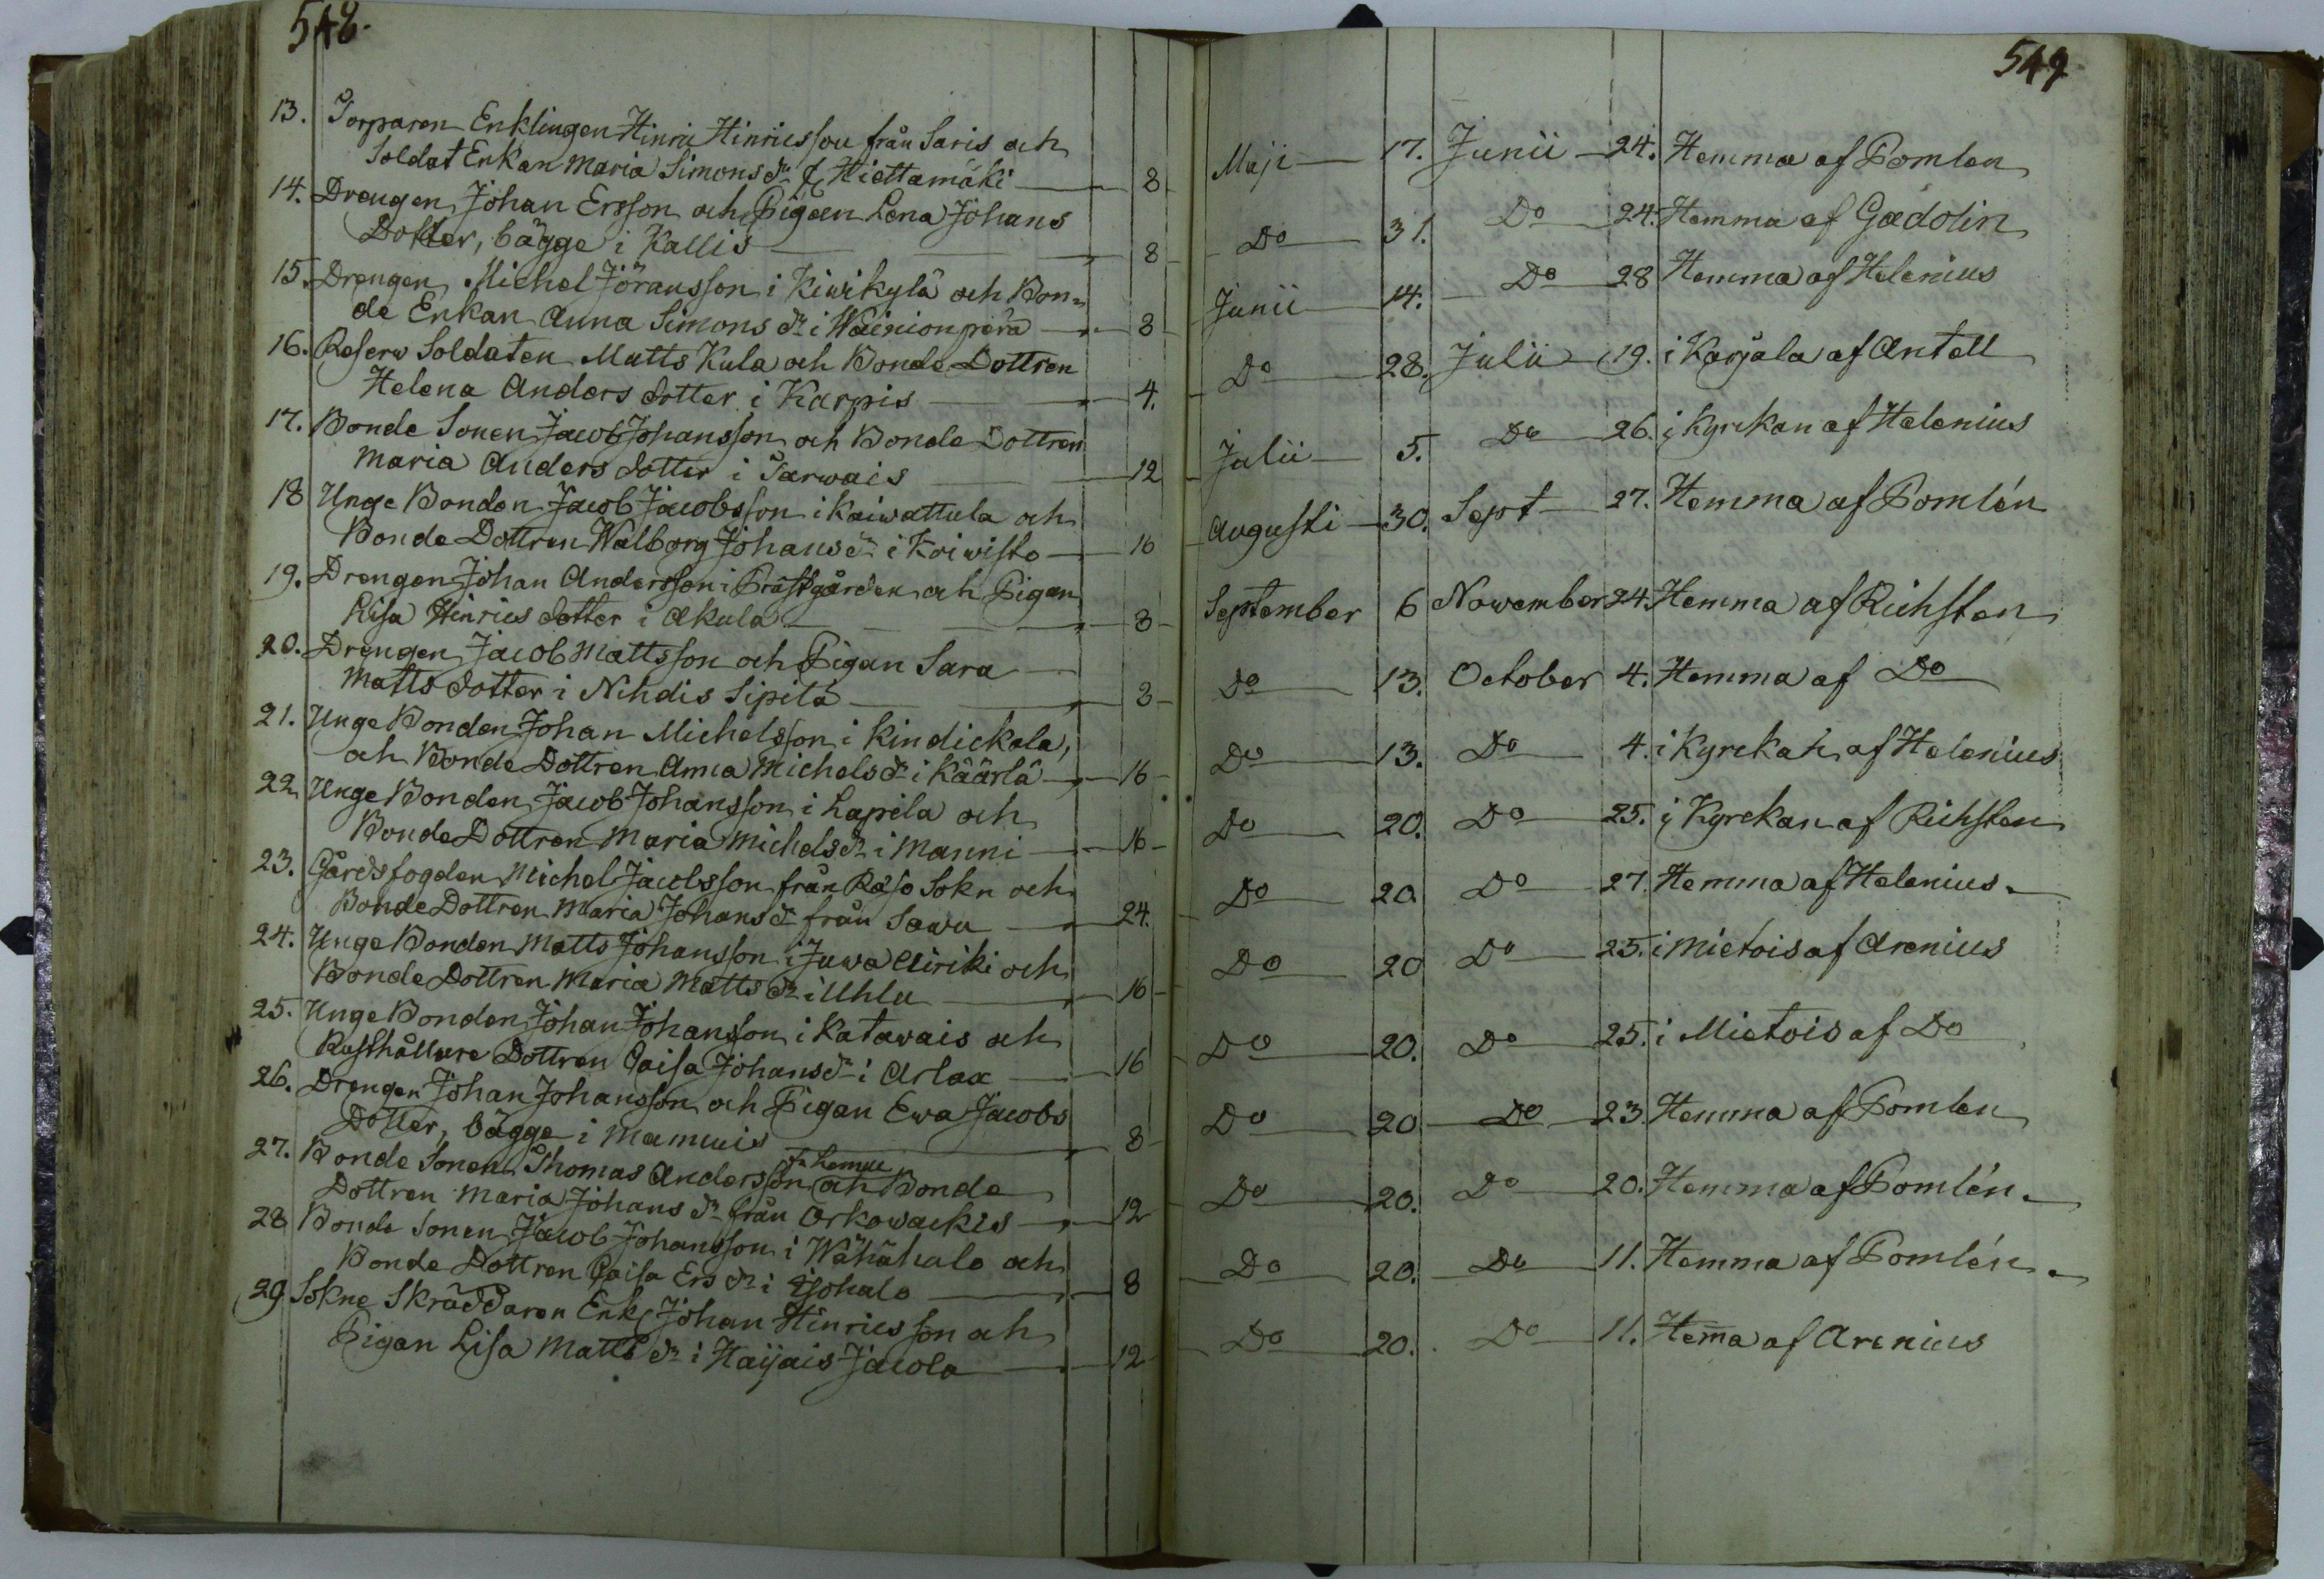 548.
13. Torparen Enklingen Hinric Hinricsson från Saris och
Soldat Enkan Maria Simons dr f. Hiettamäki — 8
14. Drengen Johan Ersson och Pigan Lena Johans
Dotter, bägge i Kallis — 8
15. Drengen Michel Jöransson i Kiwikylä och Bon=
de Enkan Anna Simons dr i Wäinionperä — 8
16. Reserw Soldaten Matts Kula och Bonde Dottren
Helena Anders dotter i Karpis — 4.
17. Bonde Sonen Jacob Johansson och Bonde Dottren
Maria Anders dotter i Tarwais — 12
18 Unge Bonden Jacob Jacobsson i Kaiwattula och
Bonde Dottren Walborg Johans dr i Koiwisto — 16
19. Drengen Johan Andersson i Prästgården och Pigan
Lisa Hinrics dotter i Akula — 8
20. Drengen Jacob Mattsson och Pigan Sara
Matts dotter i Nihdis Sipilä — 8
21. Unge Bonden Johan Michelsson i Kindickala,
och Bonde Dottren Anna Michels dr i Käärlä — 16
22 Unge Bonden Jacob Johansson i Lapila och
Bonde Dottren Maria Michels dr i Manni — 16
23. Gårdsfogden Michel Jacobsson från Raso Sokn och
Bonde Dottren Maria Johans dr från Sawu — 24.
24. Unge Bonden Matts Johansson i Juwa Eiriki och
Bonde Dottren Maria Matts dr i Uhlu — 16
25. Unge Bonden Johan Johansson i Katawais och
Rusthållare Dottren Caisa Johans dr i Arlax — 16
26. Drengen Johan Johansson och Pigan Ewa Jacobs
Dotter, bägge i Mamuis — 8
fr Lemu
27. Bonde Sonen Thomas Andersson och Bonde
Dottren Maria Johans dr från Orkowackis — 12
28 Bonde Sonen Jacob Johansson i Wähähalo och
Bonde Dottren Caisa Ers dr i Isohalo — 8
29 Sokne Skräddaren Enkl Johan Hinricsson och
Pigan Lisa Matts dr i Haijais Jacola — 12
549
Maji — 17. Junii — 24. Hemma af Pomlen
Do — 31. Do — 24. Hemma af Gadolin
Junii — 14. Do — 28 Hemma af Helenius
Do — 28. Julii — 19. i Karjala af Antell
Julii — 5. Do — 26. i Kyrckan af Helenius
Augusti — 30. Sept — 27. Hemma af Pomlén
September 6 November 24. Hemma af Richsten
Do — 13. October 4. Hemma af Do
Do — 13. Do — 4. i Kyrckan af Helenius
Do — 20. Do — 25. i Kyrckan af Richsten
Do — 20 Do — 27. Hemma af Helenius
Do — 20 Do — 25. i Mietois af Arenius
Do — 20. Do — 25. i Mietois af Do
Do — 20 Do — 23. Hemma af Pomlen
Do — 20. Do — 20. Hemma af Pomlén
Do — 20. Do — 11. Hemma af Pomlén
Do — 20. Do — 11. Hem̅a af Arenius